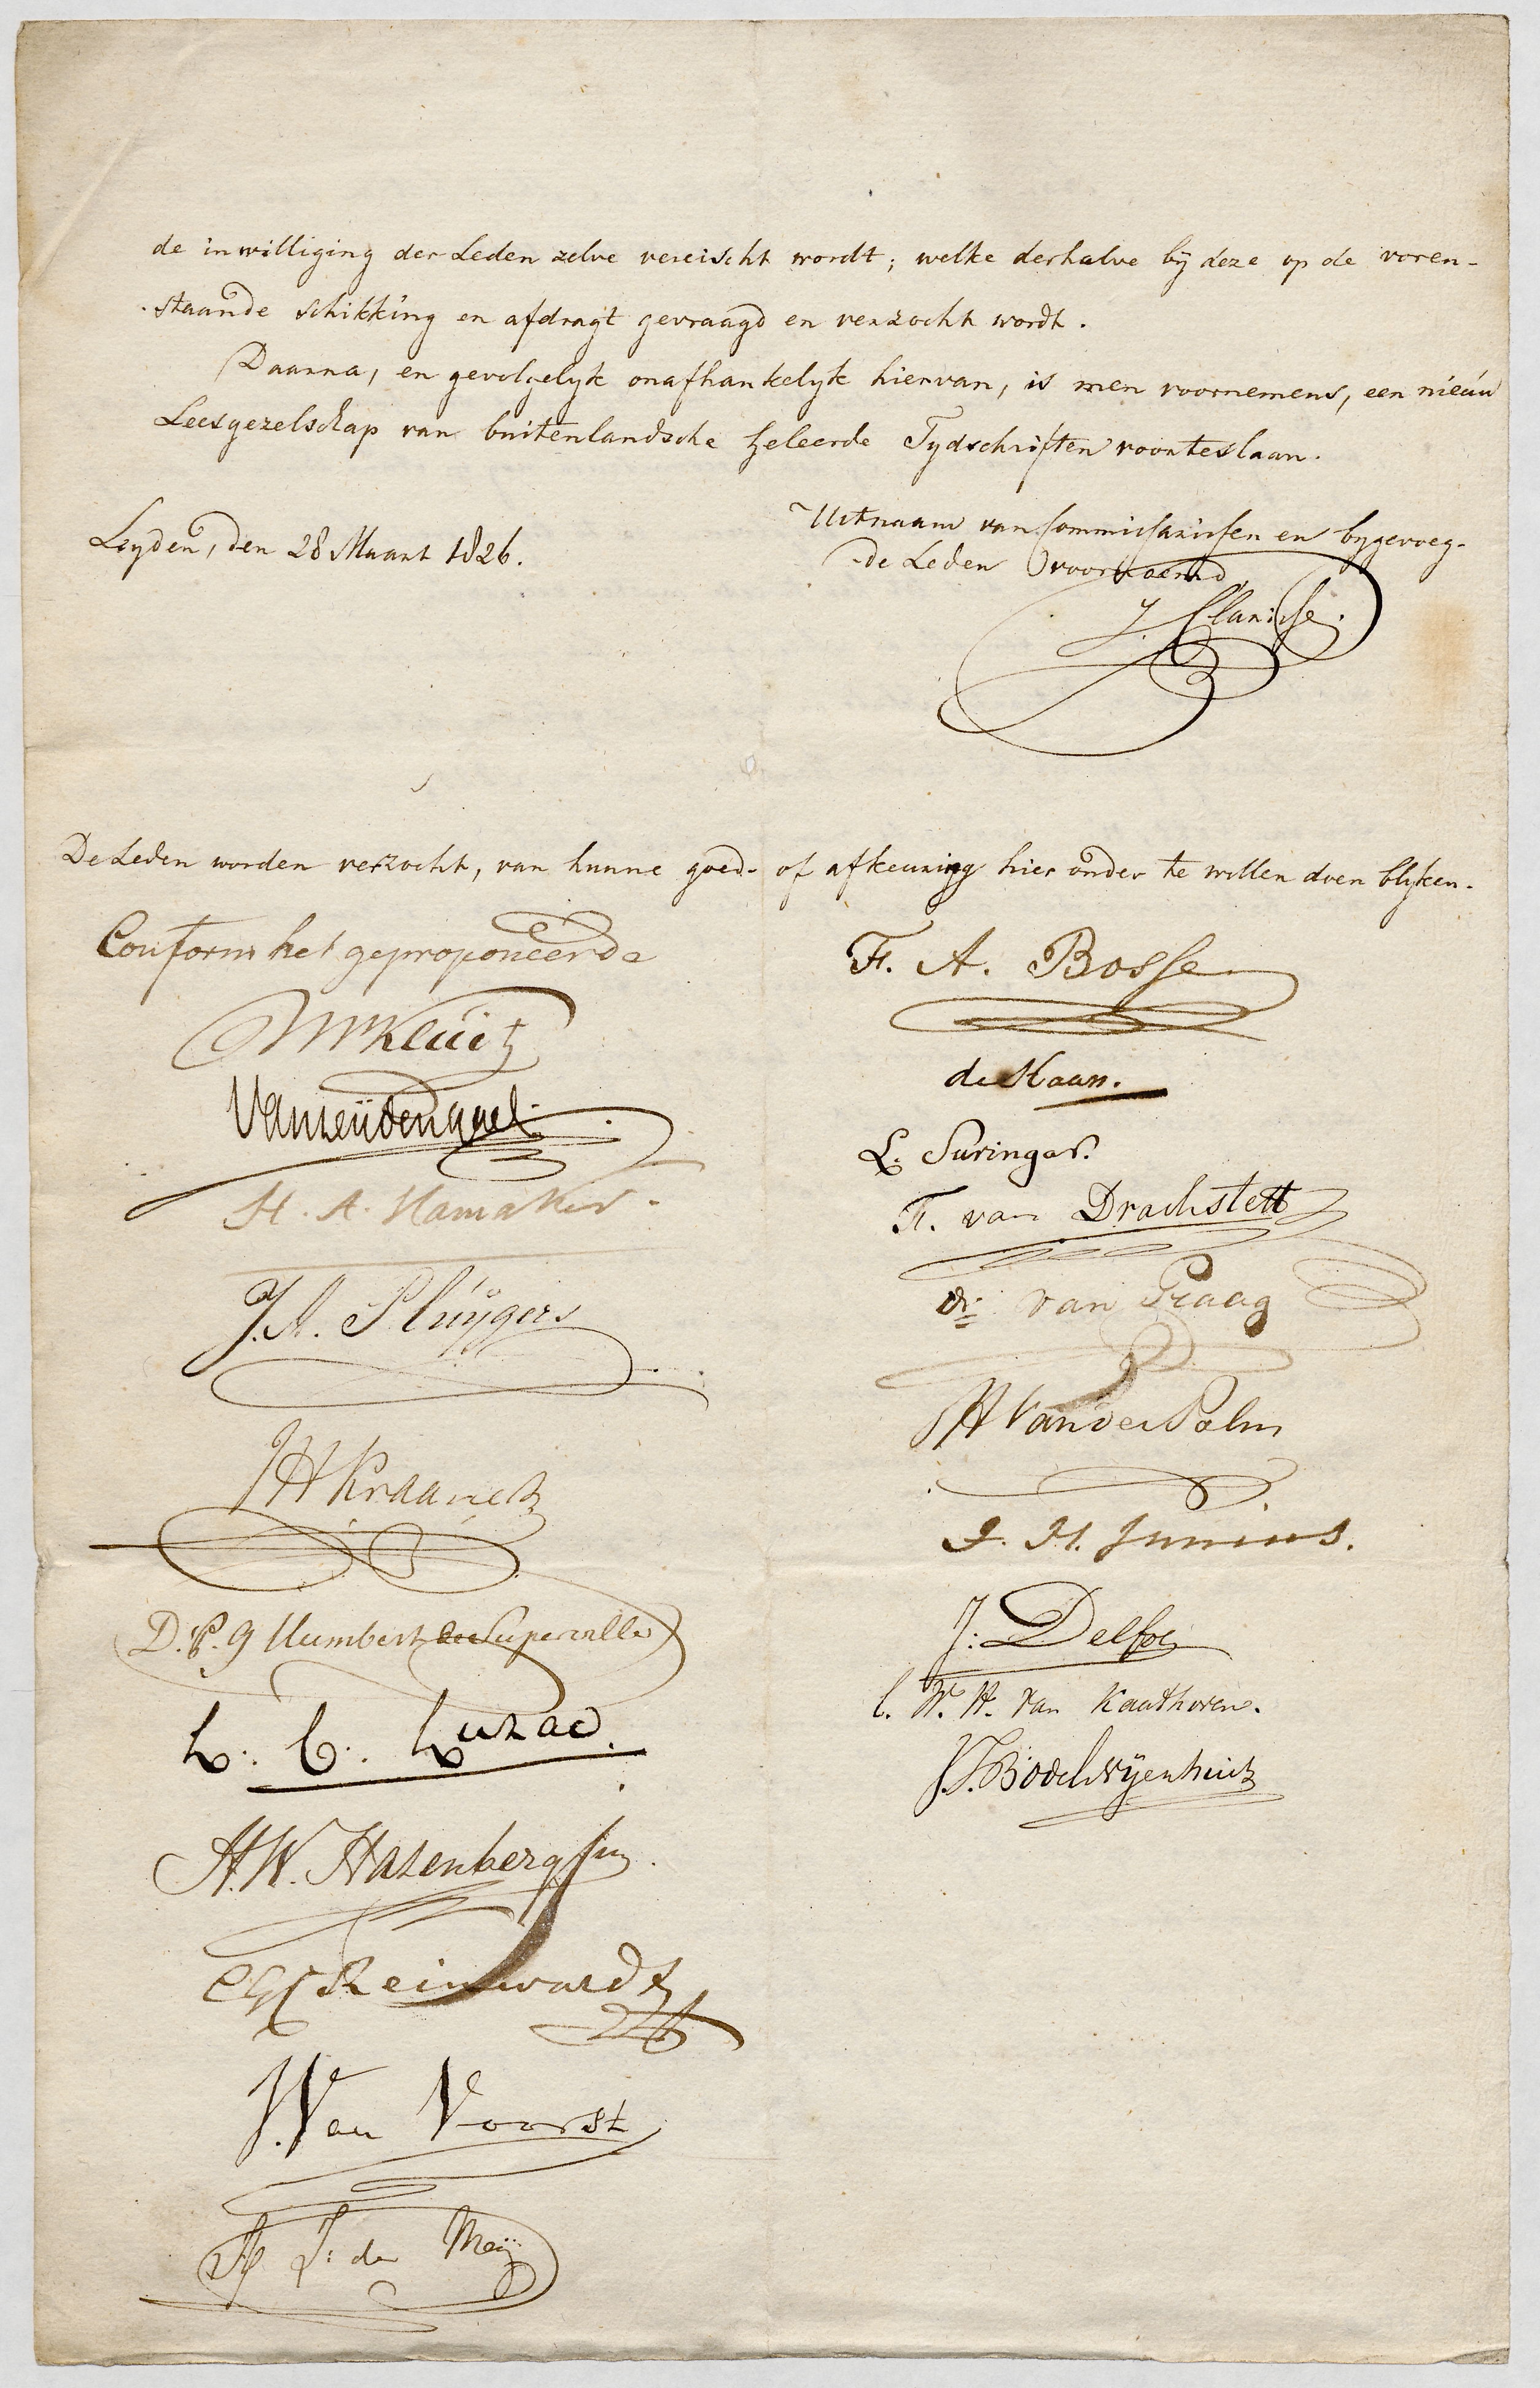 de inwilliging der Leden zelve vereischt wordt; welke derhalve bij deze op de voren-
staande schikking en afdragt gevraagd en verzocht wordt.
Daarna, en gevolgelyk onafhankelyk hiervan, is men voornemens, een nieuw
Leesgezelschap van buitenlandsche geleerde Tydschriften voorteslaan.
Leyden, den 28 Maart 1826.
Uit naam van Commissarissen en bygevoeg-
de Leden voornoemd,
J. Clarisse.
De Leden worden verzocht, van hunne goed- of afkeuring hier onder te willen doen blyken.
Conform het geproponeerde
Kluit
H. A. Hamaker.
J. A. Sluijgers
D. P. G Humbert de Superville
L. C. Luzac.
H. W. Hazenberg Jun.
CGC Reinwardt
J. Van Voorst
J: de Meij
F. A. Bosse
de Haan.
L. Suringar.
F. van Drachstett
dr. van Praag
JH Van der Palm
J. H. Junius.
J: Delfos
C. W. H. Van Kaathoven.
J. T. Bodel Nijenhuis